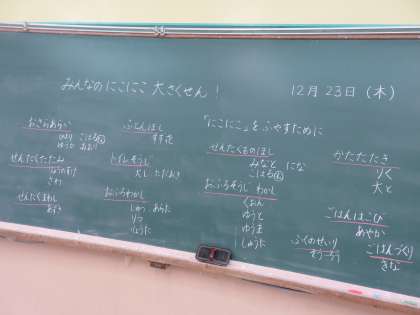 みんなの にこにこ 大さくせん！
12月 23日（木）
おさらあらい
ゆうか あおり
せんたくたたみ
さわ
せんたくまわし
あずき
ふとんほし
すず花
トイレそうじ
大し ただおき
おふろわかし
しゅり あらた
りつ
りょうた
「にこにこ」を ふやすために
せんたくものほし
みなと にな
おふろそうじ わかし
くおん
ゆうと
ゆうま
しゅうた
かたたたき
りく
大と
ごはんはこび
あやか
ふくのせいり
そういちろう
ごはんづくり
きな